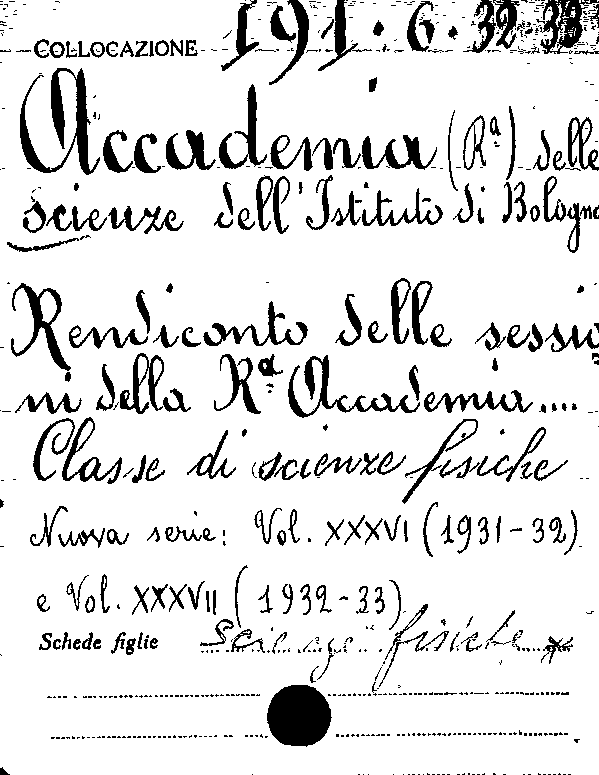 COLLOCAZIONE 191.6.32-33
Accademia (Rª) delle
scienze dell'Istituto di Bologna
Rendiconto delle sessio
ni della Rª Accademia....
Classe di scienze fisiche
Nuova serie: Vol. XXXVI (1931-32)
e Vol. XXXVII (1932-33)
Schede figlie Scienze fisiche